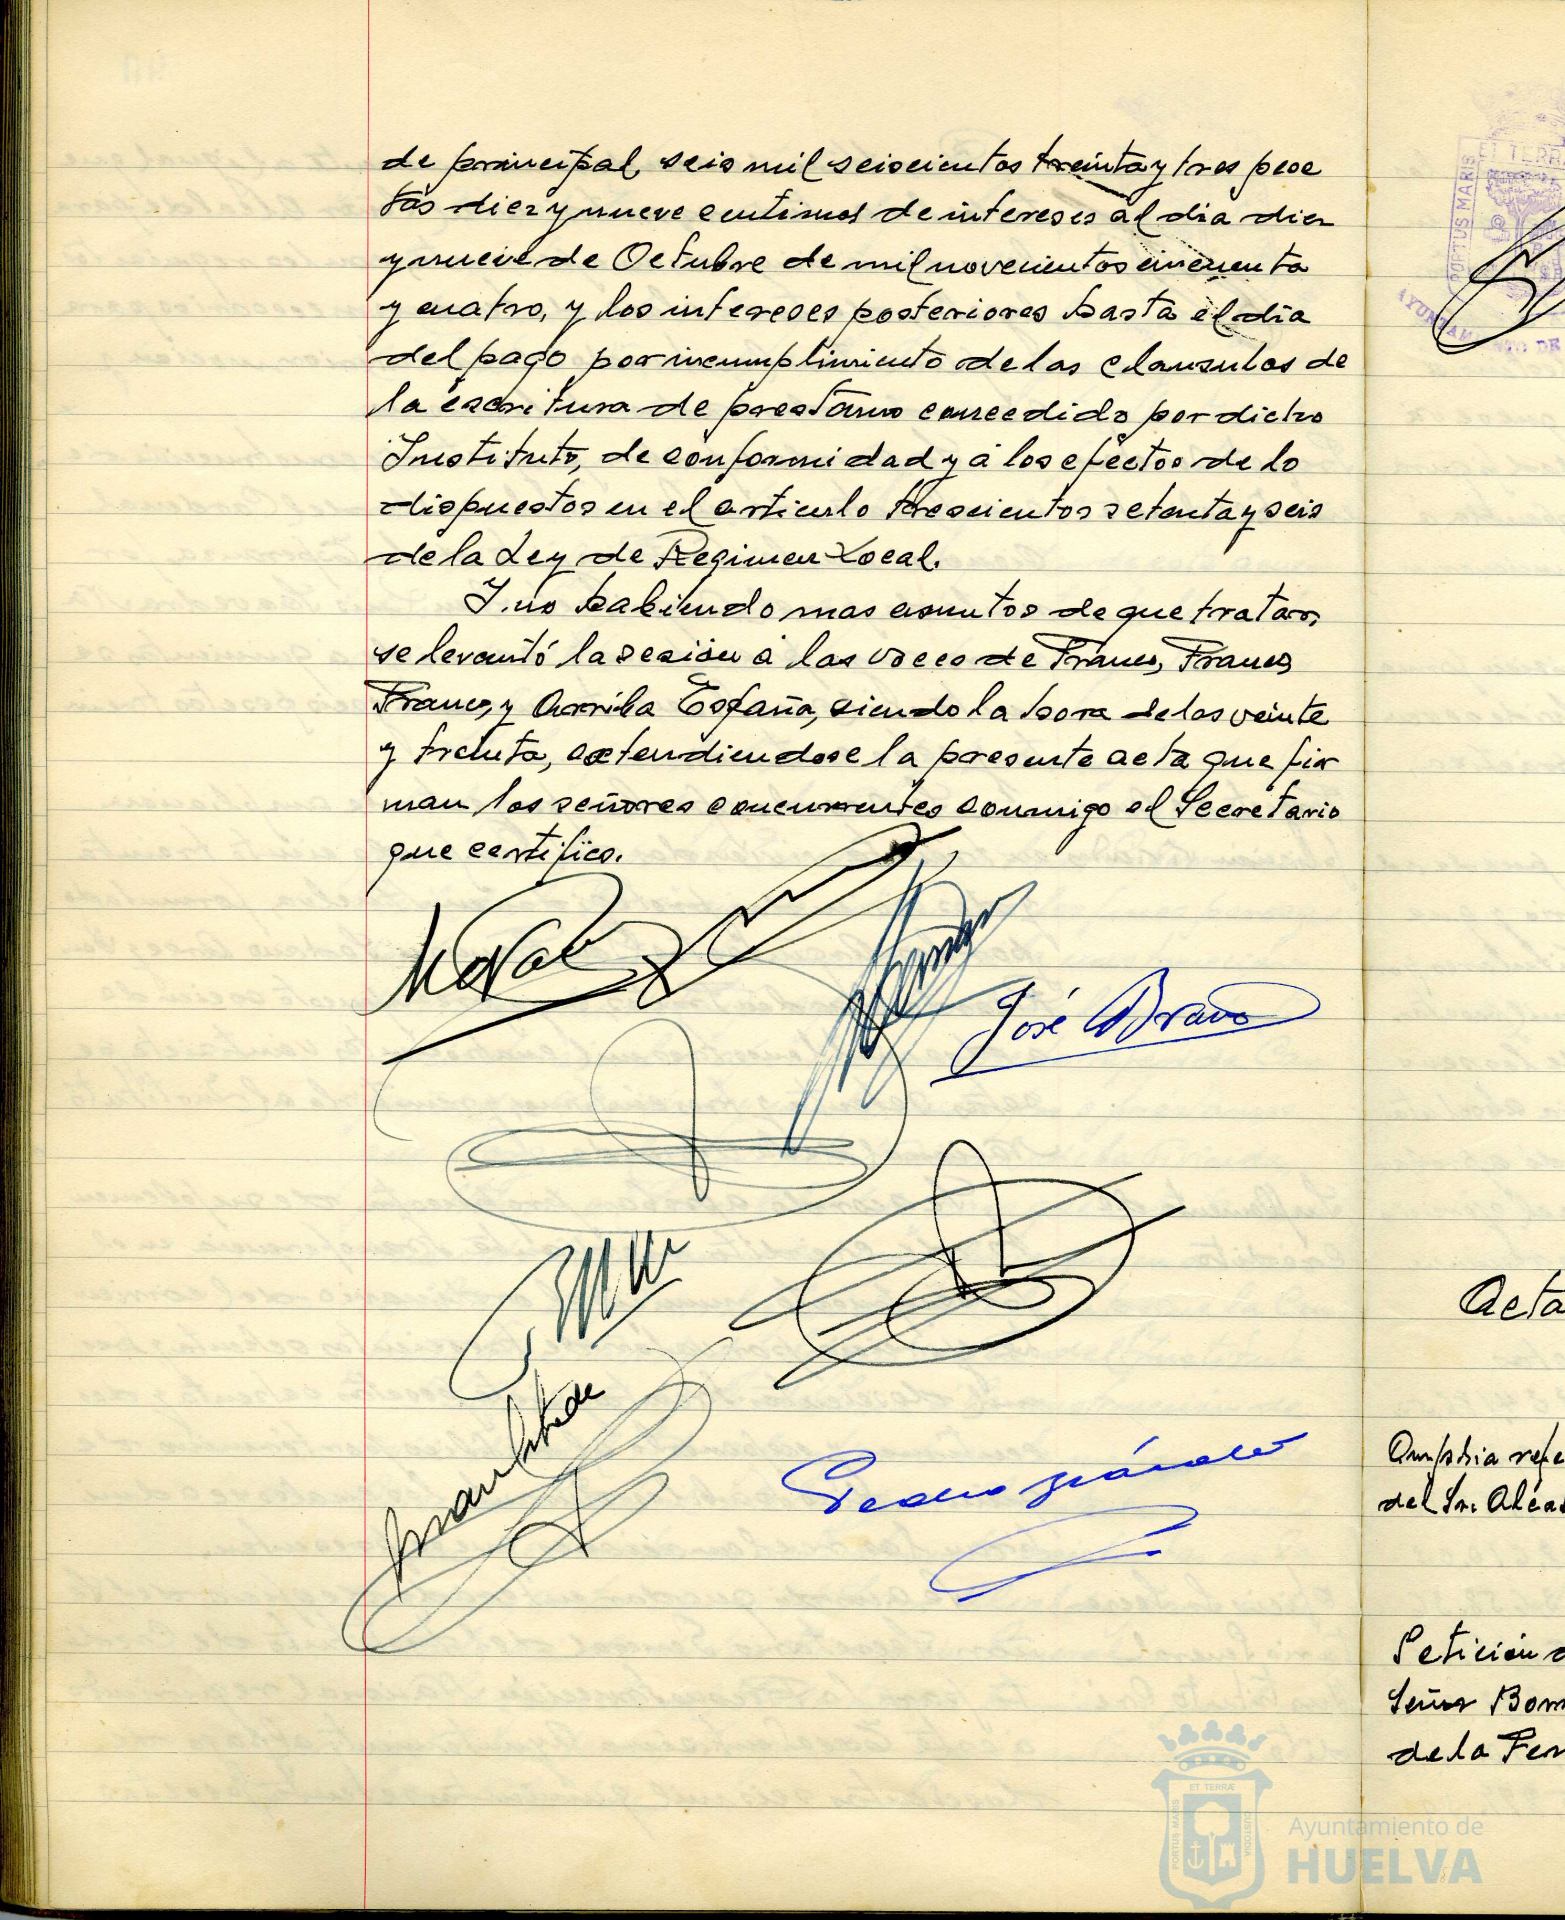 de principal, seis mil seiscientos treinta y tres pese
tas diez y nueve centimos de intereses al dia diez
y nueve de Octubre de mil novecientos cincuenta
y cuatro, y los intereses posteriores hasta el dia
del pago por incumplimiento de las clausulas de
la escritura de prestamo concedido por dicho
Instituto, de conformidad y a los efectos de lo
dispuestos en el articulo trescientos setenta y seis
de la Ley de Regimen Local.
Y no habiendo mas asuntos de que tratar,
se levantó la sesión a las voces de Franco, Franco,
Franco, y Arriba España, siendo la hora de las veinte
y treinta, extendiendose la presente acta que fir
man los señores concurrentes conmigo el Secretario
que certifico.
José Bravo
Acta
Ampstia refe
del Sr. Alcal
Petición d
Señor Bom
de la Fer
PORTUS MARIS
ET TERRA
AYUNTAMIENTO DE
ET TERRÆ
PORTUS MARIS
CUSTODIA
Ayuntamiento de
HUELVA